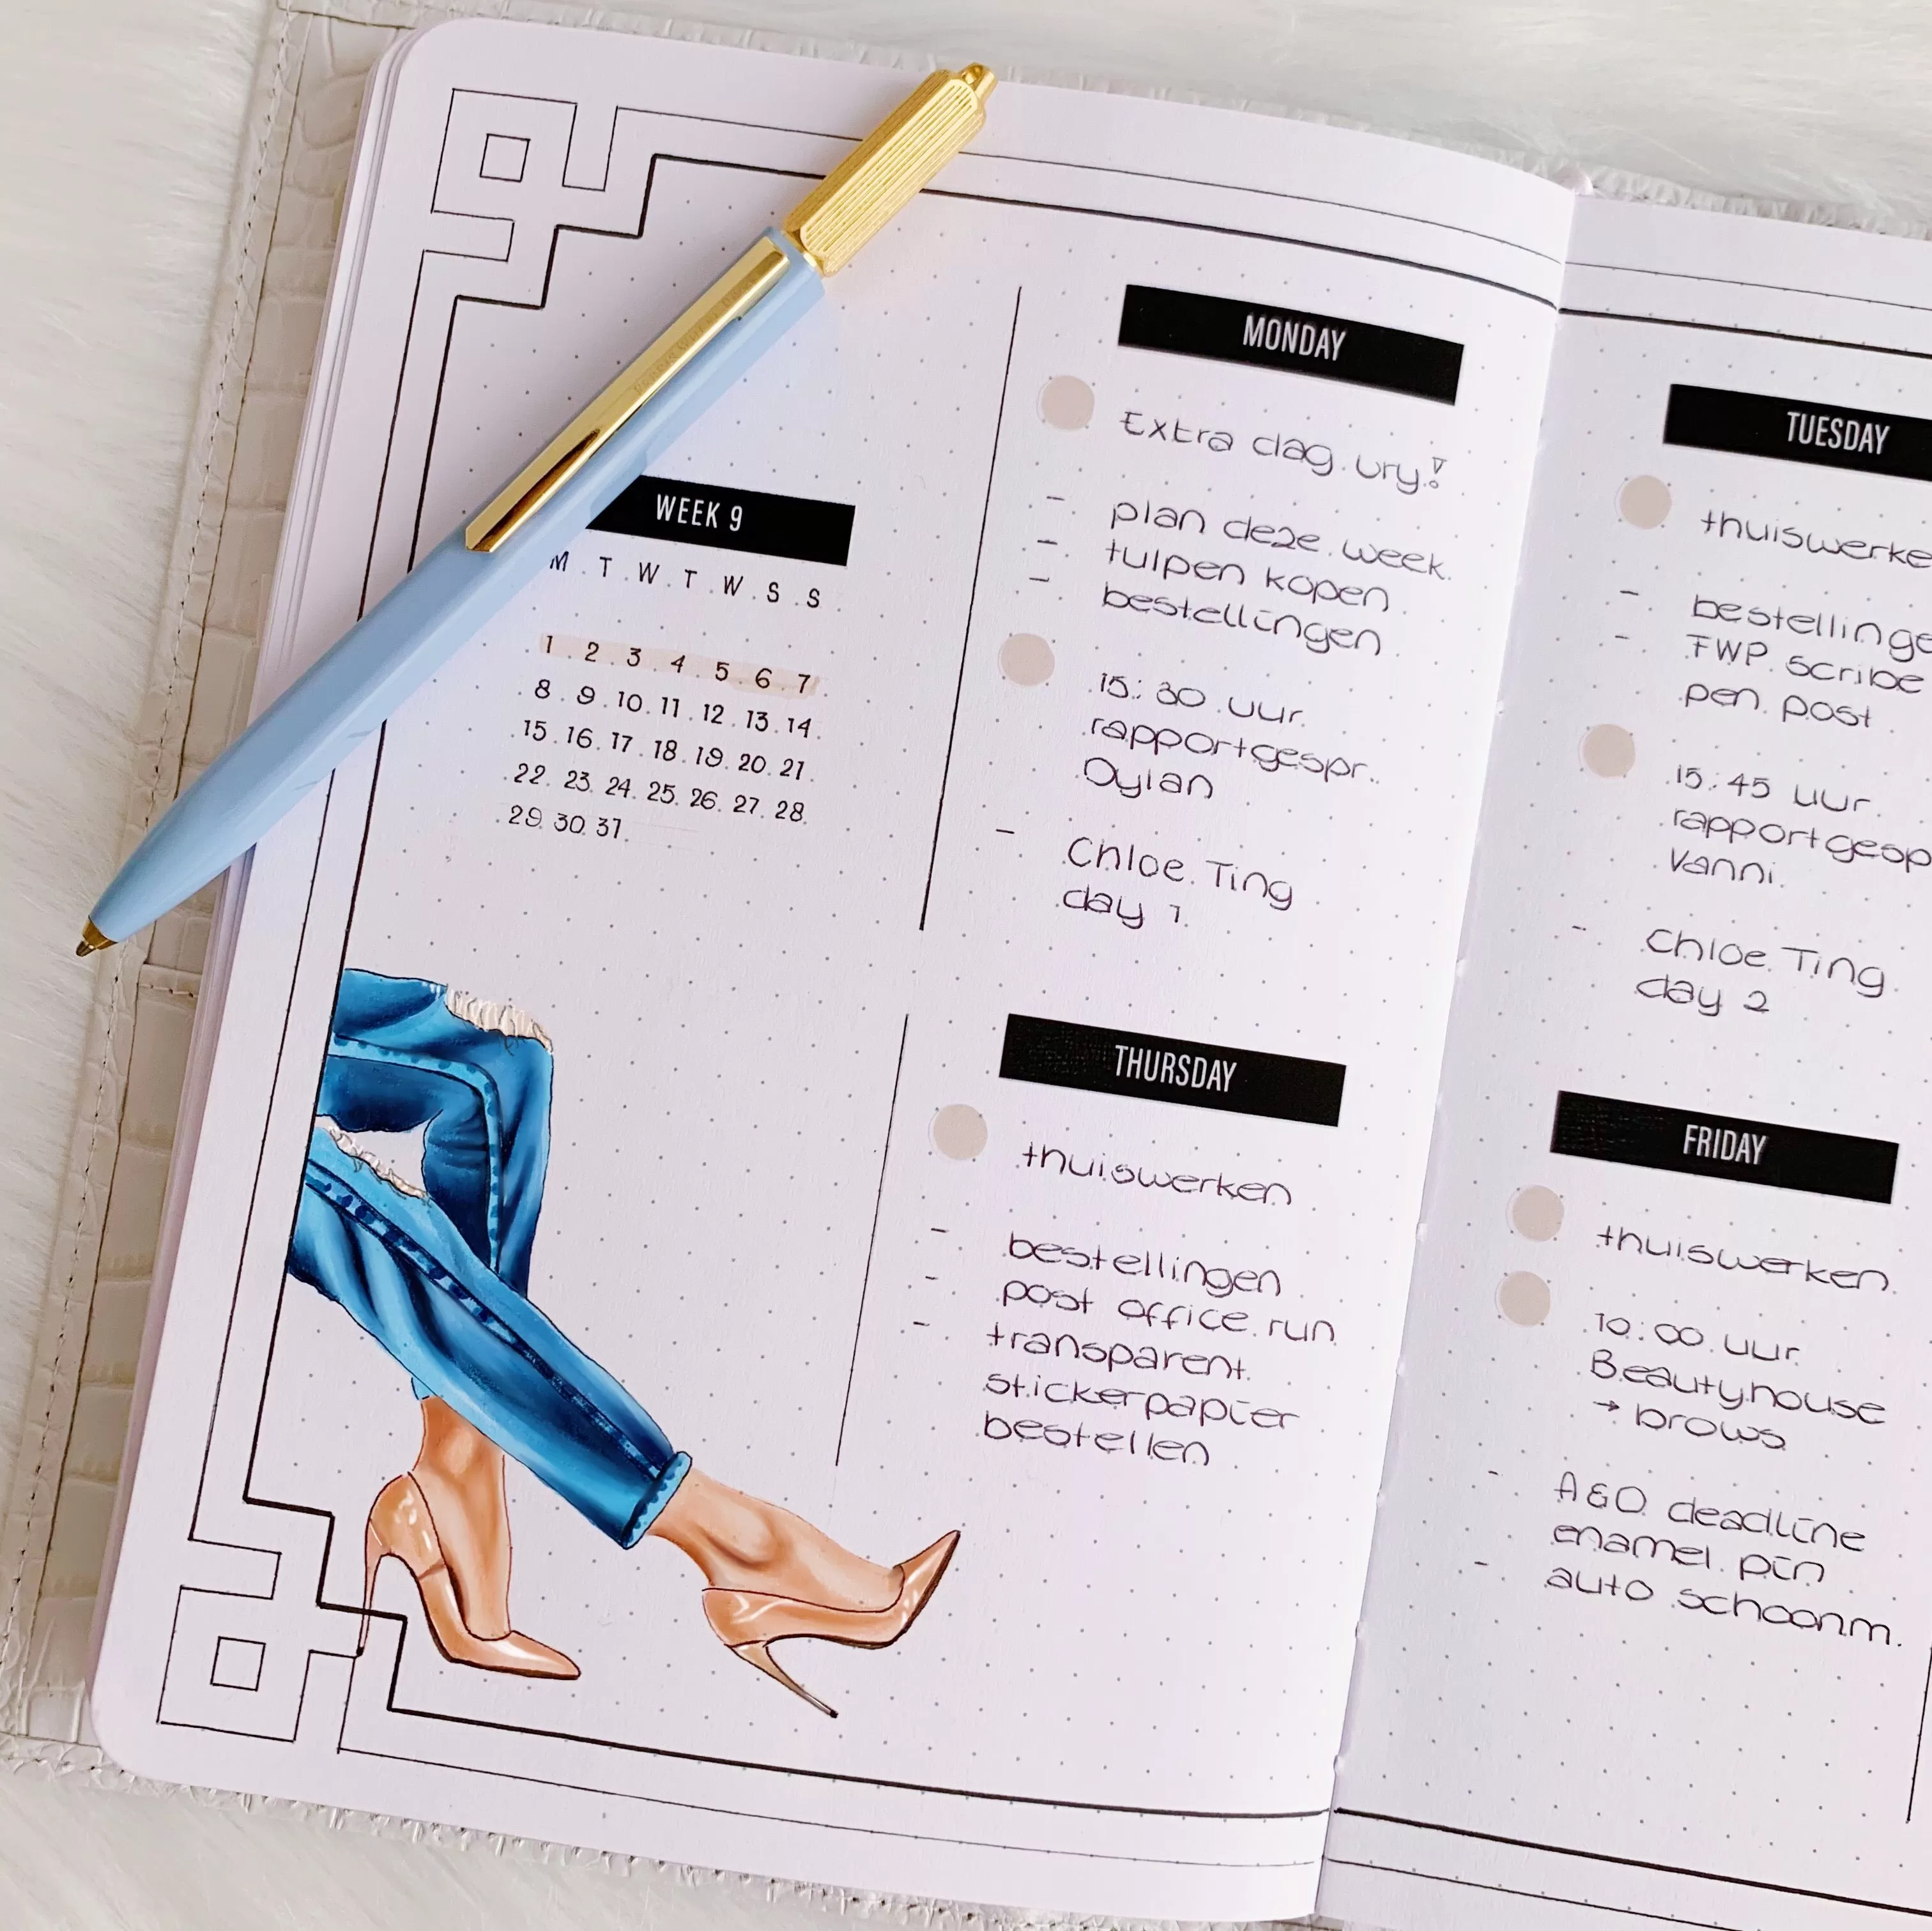 WEEK 9
M T W T W S S
1 2 3 4 5 6 7
8 9 10 11 12 13 14
15 16 17 18 19 20 21
22 23 24 25 26 27 28
29 30 31
MONDAY
Extra dag vrij!
- plan deze week
- tulpen kopen
- bestellingen
15:30 uur
rapportgespr.
Dylan
- Chloe Ting
day 1
TUESDAY
thuiswerke
- bestellinge
- FWP scribe
pen post
15:45 uur
rapportgesp
Vanni
- Chloe Ting
day 2
THURSDAY
thuiswerken
- bestellingen
- post office run
- transparent
stickerpapier
bestellen
FRIDAY
thuiswerken
10:00 uur
Beautyhouse
→ brows
- A&O deadline
enamel pin
- auto schoonm.